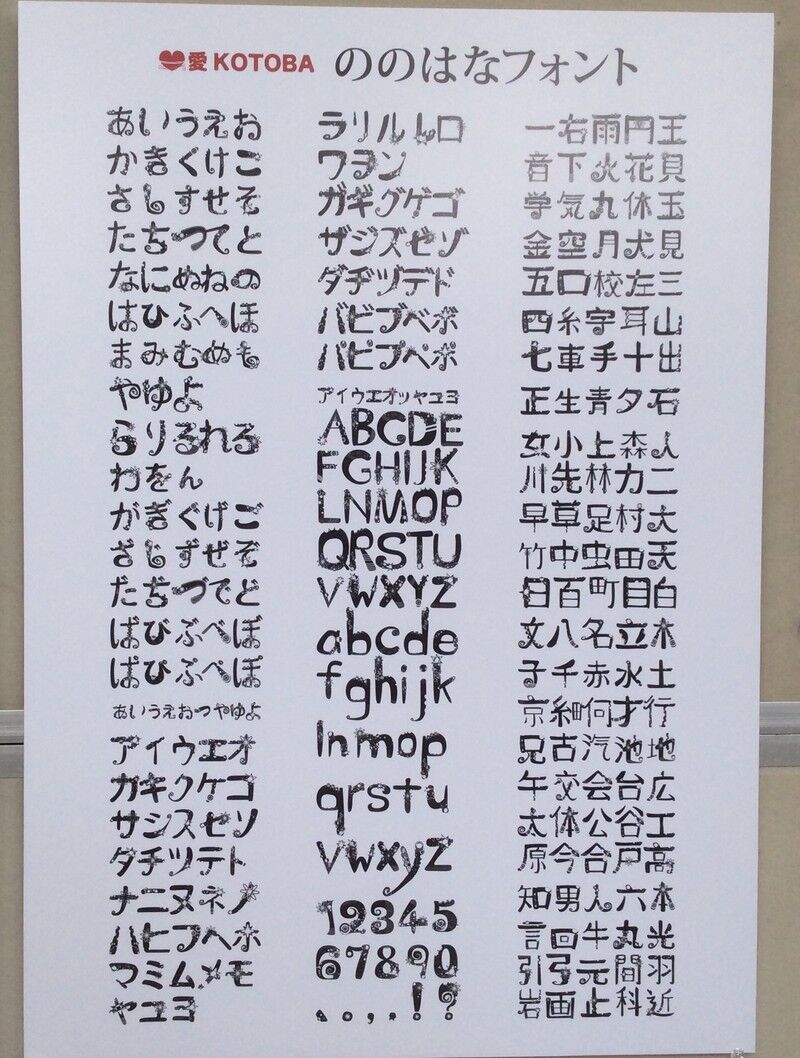 愛KOTOBA ののはなフォント
あいうえお
かきくけこ
さしすせそ
たちつてと
なにぬねの
はひふへほ
まみむめも
やゆよ
らりるれろ
わをん
がぎぐげご
ざじずぜぞ
だぢづでど
ばびぶべぼ
ぱぴぷぺぽ
あいうえおつやゆよ
アイウエオ
カキクケコ
サシスセソ
タチツテト
ナニヌネノ
ハヒフヘホ
マミムメモ
ヤユヨ
ラリルレロ
ワヲン
ガギグゲゴ
ザジズゼゾ
ダヂヅデド
バビブベボ
パピプペポ
アイウエオッヤユヨ
ABCDE
FGHIJK
LNMOP
QRSTU
VWXYZ
abcde
fghijk
lnmop
qrstu
vwxyz
12345
67890
、。,.!?
一右雨円王
音下火花貝
学気九休玉
金空月犬見
五口校左三
四糸字耳山
七車手十出
正生青夕石
女小上森人
川先林力二
早草足村大
竹中虫田天
日百町目白
文八名立木
子千赤水土
京細何才行
兄古汽池地
午交会台広
太体公谷工
原今合戸高
知男人六本
言回牛丸光
引弓元間羽
岩画止科近